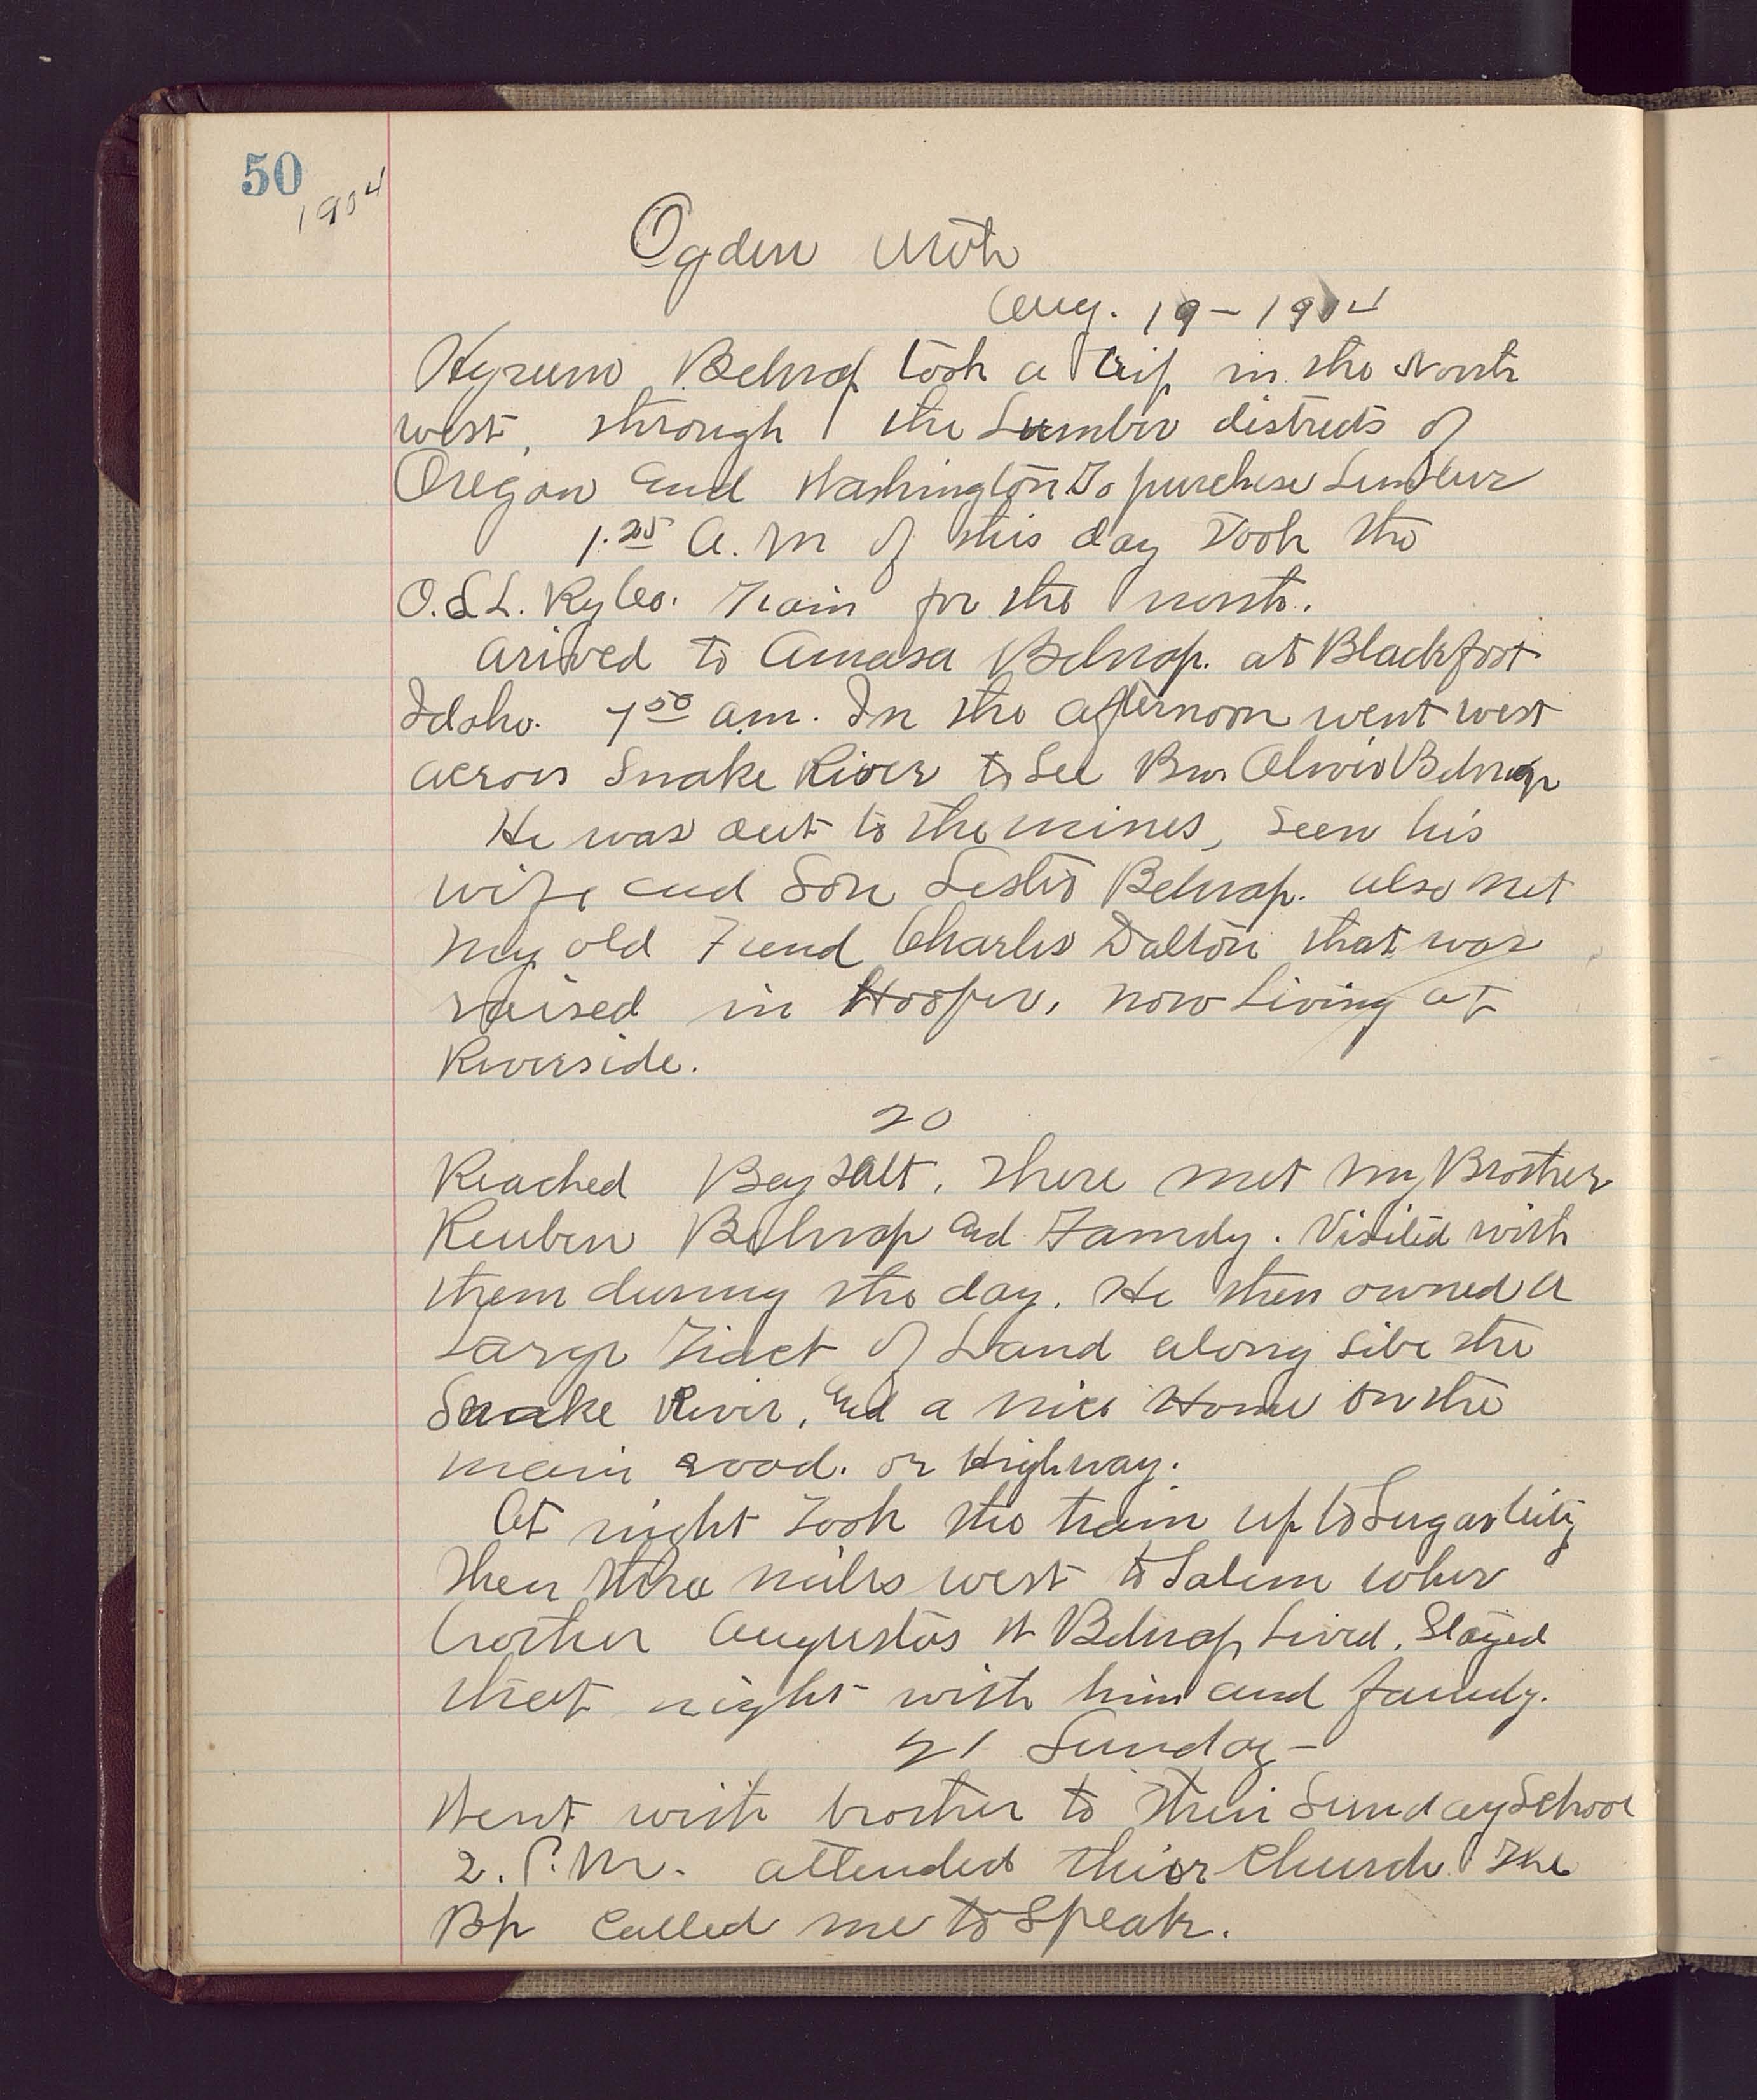 50
1904
Ogden Utah
Aug. 19-1904
Hyrum Belnap took a trip in the North
west, through the Lumber districts of
Oregon and Washington To purchase Lumber
1.25 A.M of this day Took the
O.S.L. Ry Co. Train for the north.
arived to Amasa Belnap. at Blackfoot
Idaho. 7 50 am. In the afternoon went west
across Snake River to See Bro. Oliver Belnap
He was out to the mines, Seen his
wife and Son Leslie Belnap. also met
my old Friend Charles Dalton that was
raised in Hooper, now Living at
Riverside.
20
Reached Baysalt. There met my Brother
Reuben Belnap and Family. Visited with
them during the day. He then owned a
Large Tract of Land along side the
Snake River, and a nice Home on the
main road. or Highway.
At night Took the train up to Sugar City
Then three miles west to Salem wher
brother Augustus W Belnap Lived. Stayed
that night with him and family.
21 Sunday-
Went with brother to Their Sunday School
2. P.M. attended thier Church The
Bp Called me to Speak.